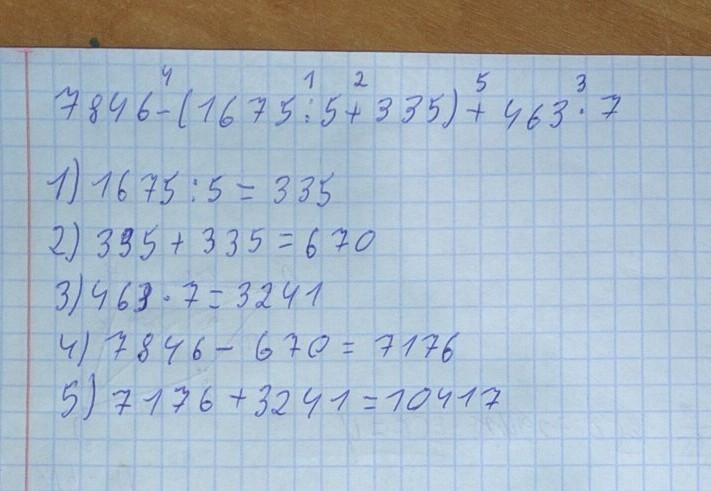 4 1 2 5 3
7846-(1675:5+335)+463·7
1) 1675:5=335
2) 335+335=670
3) 463·7=3241
4) 7846-670=7176
5) 7176+3241=10417